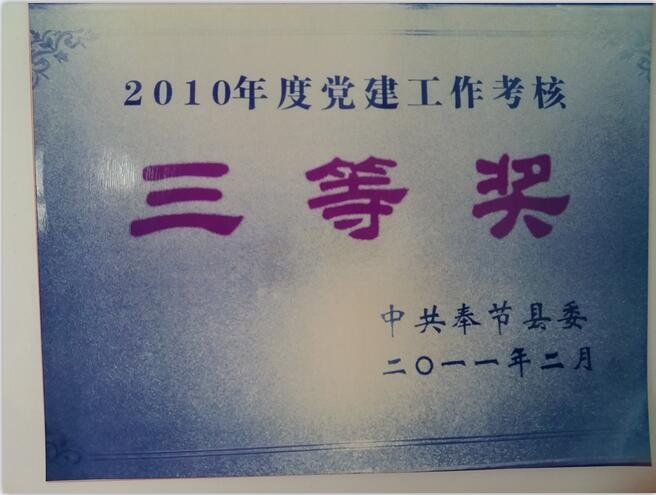 2010年度党建工作考核
三等奖
中共奉节县委
二〇一一年二月